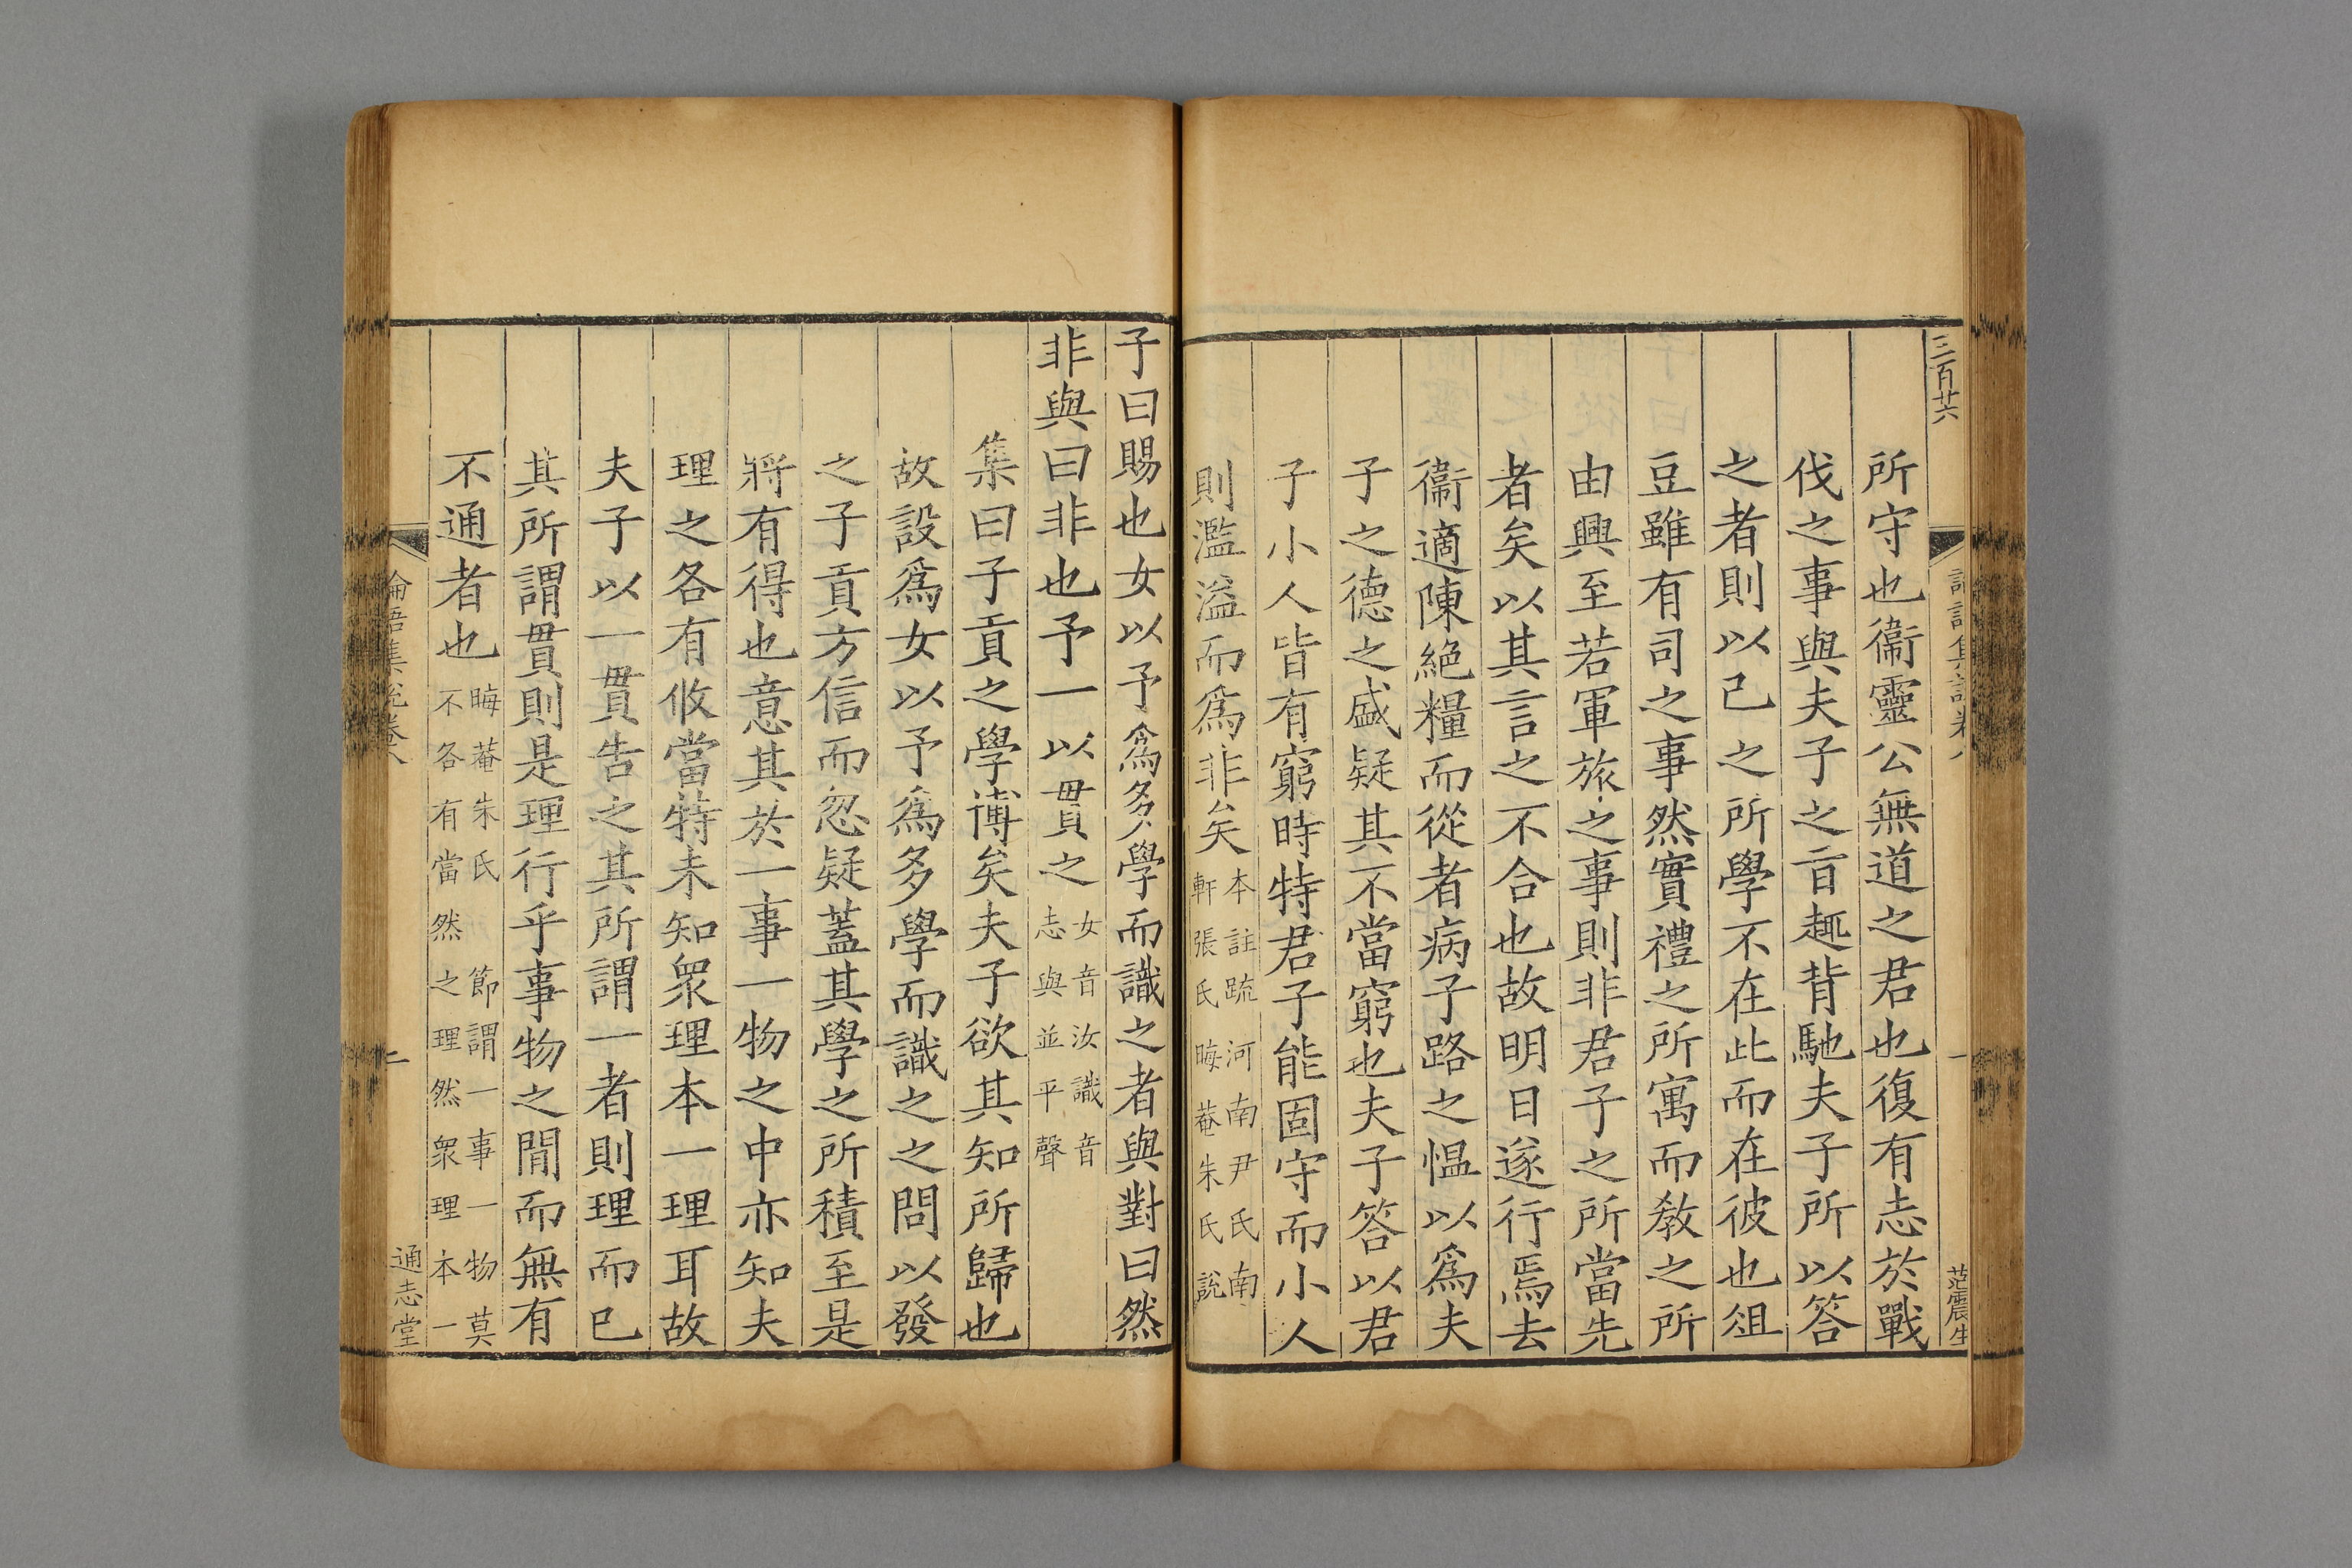 三百廿六
所守也衞靈公無道之君也復有志於戰
伐之事與夫子之㫖趣背馳夫子所以答
之者則以己之所學不在此而在彼也俎
豆雖有司之事然實禮之所寓而敎之所
由興至若軍旅之事則非君子之所當先
者矣以其言之不合也故明日遂行焉去
衞適陳絶糧而從者病子路之愠以爲夫
子之德之盛疑其不當窮也夫子答以君
子小人皆有窮時特君子能固守而小人
則濫溢而爲非矣
本註疏河南尹氏南
軒張氏晦菴朱氏說
子曰賜也女以予爲多學而識之者與對曰然
非與曰非也予一以貫之
女音汝識音
志與並平聲
集曰子貢之學博矣夫子欲其知所歸也
故設爲女以予爲多學而識之之問以發
之子貢方信而忽疑蓋其學之所積至是
將有得也意其於一事一物之中亦知夫
理之各有攸當特未知衆理本一理耳故
夫子以一貫告之其所謂一者則理而已
其所謂貫則是理行乎事物之間而無有
不通者也
晦菴朱氏節謂一事一物莫
不各有當然之理然衆理本一
論語集說卷八
二
通志堂